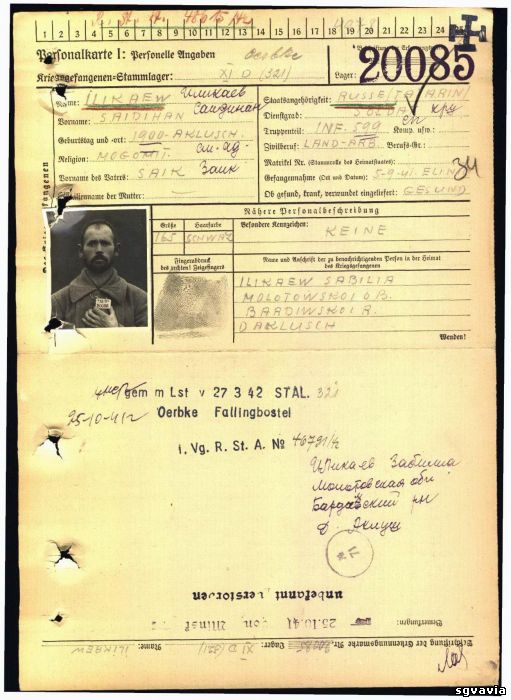 1 2 3 4 5 6 7 8 9 10 11 12 13 14 15 16 17 18 19 20 21 22 23 24
Personalkarte I: Personelle Angaben
Oerbke
Kriegsgefangenen-Stammlager: XI D (321)
Lager: 20085
Name: ILIKAEW Иликаев
Vorname: SAIDIHAN
Geburtstag und -ort: 1900-AKLUSCH.
Religion: MOGOMIT.
Vorname des Vaters: SAIK Заик
Familienname der Mutter:
Staatsangehörigkeit: RUSSE (TATARIN)
Dienstgrad: SOLDAT
Truppenteil: INF. 599 Komp. usw.:
Zivilberuf: LAND-ARB. Berufs-Gr.:
Matrikel Nr. (Stammrolle des Heimatstaates):
Gefangennahme (Ort und Datum): 5-9-41. ELIN
Ob gesund, krank, verwundet eingeliefert: GESUND
Nähere Personalbeschreibung
Größe Haarfarbe Besondere Kennzeichen:
165 SCHWARZ KEINE
Fingerabdruck
des rechten! Zeigefingers
Name und Anschrift der zu benachrichtigenden Person in der Heimat
des Kriegsgefangenen
ILIKAEW SABILIA
MOLOTOWSKOI OB.
BARDIWSKOI R.
D AKLUSCH
Wenden!
gem m Lst v 27 3 42 STAL. 321
Oerbke Fallingbostel
25-10-41
i. Vg. R. St. A. № 46791/2
Иликаев Забилиа
Молотовская обл
Бардовский рн
Д. Яклуш
unbekannt verstorben
Bemerkungen: 25.10.41 von
Beschriftung der Erkennungsmarke Nr. 20085 Lager: XI D (321) Name: ILIKAEW
sgvavia